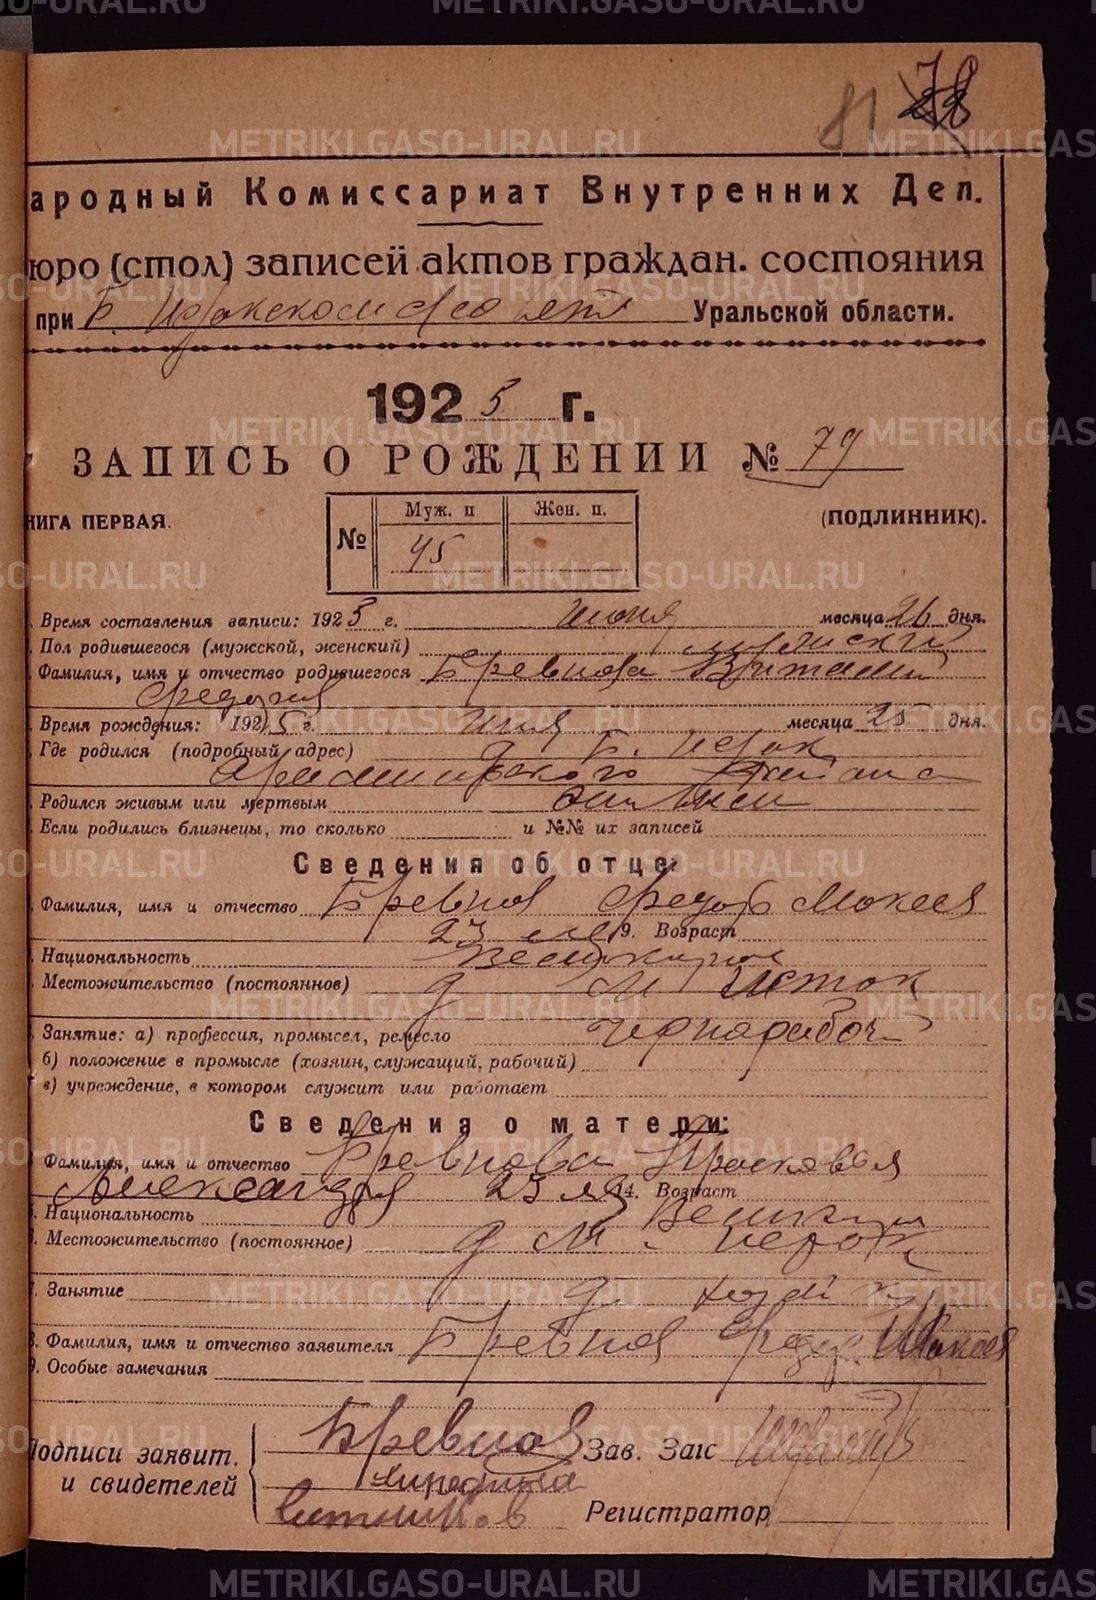 81 78
ародный Комиссариат Внутренних Дел.
юро (стол) записей актов граждан. состояния
при Б. Уральской области.
1925 г.
ЗАПИСЬ О РОЖДЕНИИ № 79
НИГА ПЕРВАЯ. (ПОДЛИННИК).
№ Муж. п Жен. п.
45
. Время составления записи: 1925 г. июня месяца 26 дня.
. Пол родившегося (мужской, женский) мужской
. Фамилия, имя и отчество родившегося Бревнова Виталий
Федоров
. Время рождения: 1925 г. июня месяца 25 дня.
. Где родился (подробный адрес) д Б. Исток
Арамильского
. Родился живым или мертвым живым
. Если родились близнецы, то сколько и №№ их записей
Сведения об отце:
. Фамилия, имя и отчество Бревнов Федор Мокеев
23 лет 9. Возраст
. Национальность
. Местожительство (постоянное) д М Исток
. Занятие: а) профессия, промысел, ремесло чернорабоч
б) положение в промысле (хозяин, служащий, рабочий)
в) учреждение, в котором служит или работает
Сведения о матери:
Фамилия, имя и отчество Бревнова Прасковья
Александр 23 14. Возраст
. Национальность
. Местожительство (постоянное) д М. Исток
. Занятие д хозяйк
8. Фамилия, имя и отчество заявителя Бревнов Федор Мокеев
9. Особые замечания
Подписи заявит. Бревнов Зав. Загс
и свидетелей
Регистратор